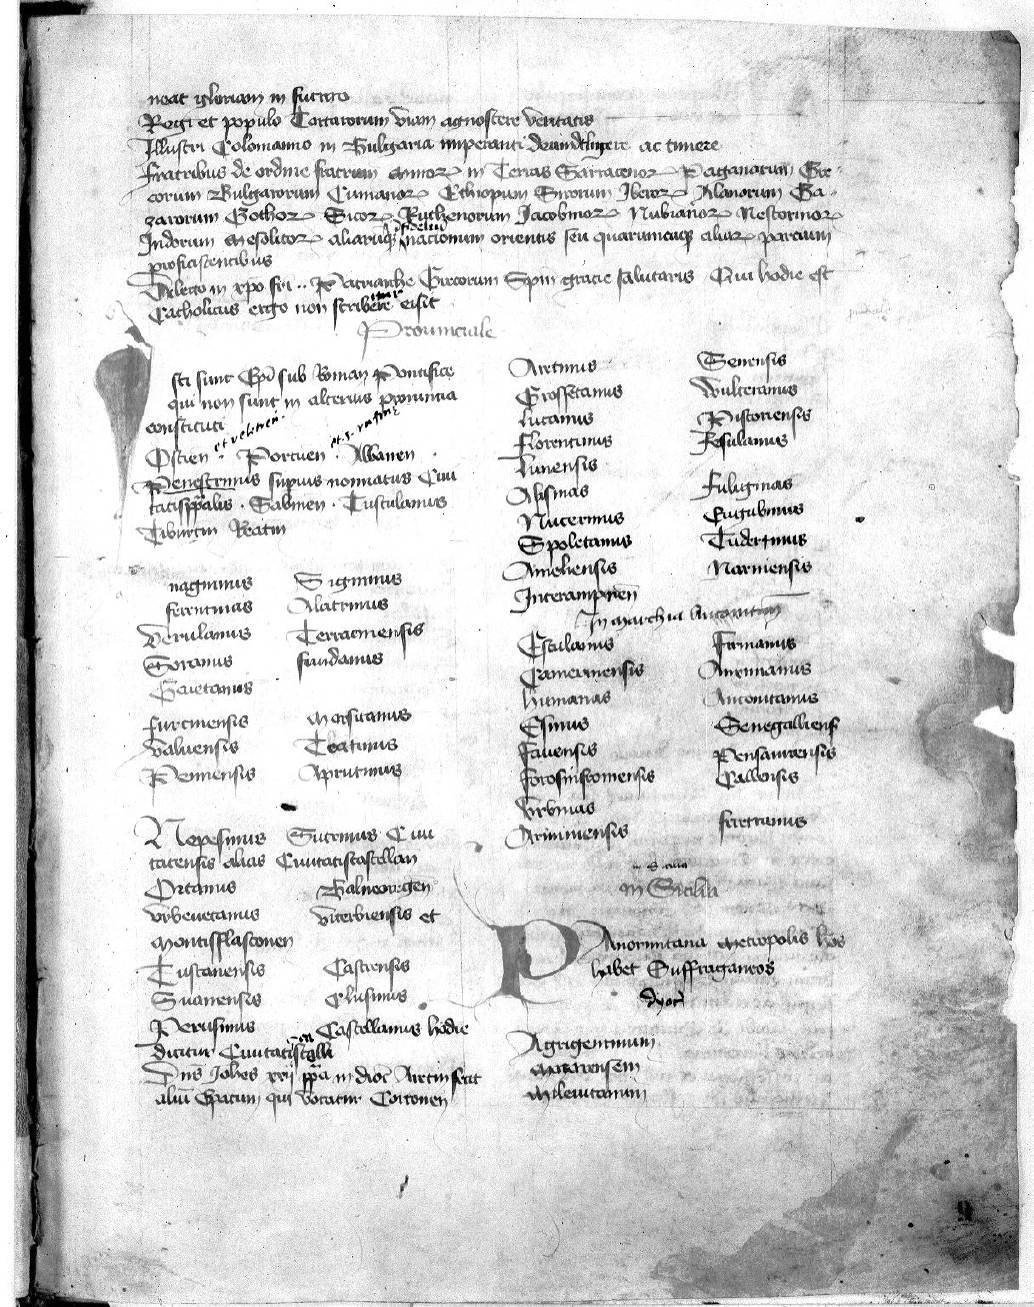 neat gloriam in futuro
Regi et populo Tartarorum viam agnoscere veritatis
Illustri Colomanno in Bulgaria imperanti deum diligere ac timere
fratribus de ordine fratrum minor in Terras Sarracenor Paganorum Gre
corum Bulgarorum Cumanor Ethiopum Sirorum Iberor Alanorum Ga
zarorum Gothor Sicor Ruthenorum Jacobinor Nubianor Nestorinor
Indorum Mesolitor aliarumq infidelium nacionum orientis seu quarumcumq aliar parcium
proficiscentibus
Dilecto in xpo fri .. Patriarche Grecorum Spm gracie salutaris Qui hodie est
Catholicus ergo non scribere eisit
Provinciale
sti sunt Epi sub Roman Pontifice
qui non sunt in alterius provincia
constituti
Ostien et veletren . Portuen et s. rufine . Albanen .
Penestrinus supius nominatus Civi
tatisppalis . Sabinen . Tusculanus
Tiburtin Reatin
nagninus Signinus
ferentinas Alatrinus
Verulanus Terracinensis
Soranus fundanus
Gaietanus
furconensis Marsicanus
Valuensis Theatinus
Pennensis Aprutinus
Nepesinus Sutrinus Civi
tatensis alias Civitatiscastellan
Ortanus Balneoregen
Urbevetanus Viterbiensis et
Montisflasconen
Tuscanensis Castrensis
Suanensis Clusinus
Perusinus Castellanus hodie
dicitur Civitatiscastelli
Dns Johes xxij ppa in dioc Aretin fecit
aliu Epatum qui vocatur Cortonen
Aretinus Senensis
Grossetanus Vulteranus
Lucanus Pistoriensis
Florentinus Fesulanus
Lunensis
Asisinas Fuliginas
Nucerinus Eugubinus
Spoletanus Tudertinus
Ameliensis Narniensis
Interampnen
In marchia Anconitan
Esculanus Firmanus
Camerinensis Auximanus
Humanas Anconitanus
Esinus Senegalliens
Fanensis Pensauriensis
Forosinfroniensis Callensis
Urbinas
Ariminensis feretranus
in Sicilia
in Sicilia
Panormitana metropolis hos
habet Suffraganeos
dyoc
Agrigentinum
Mazarensem
Milevitanum
9